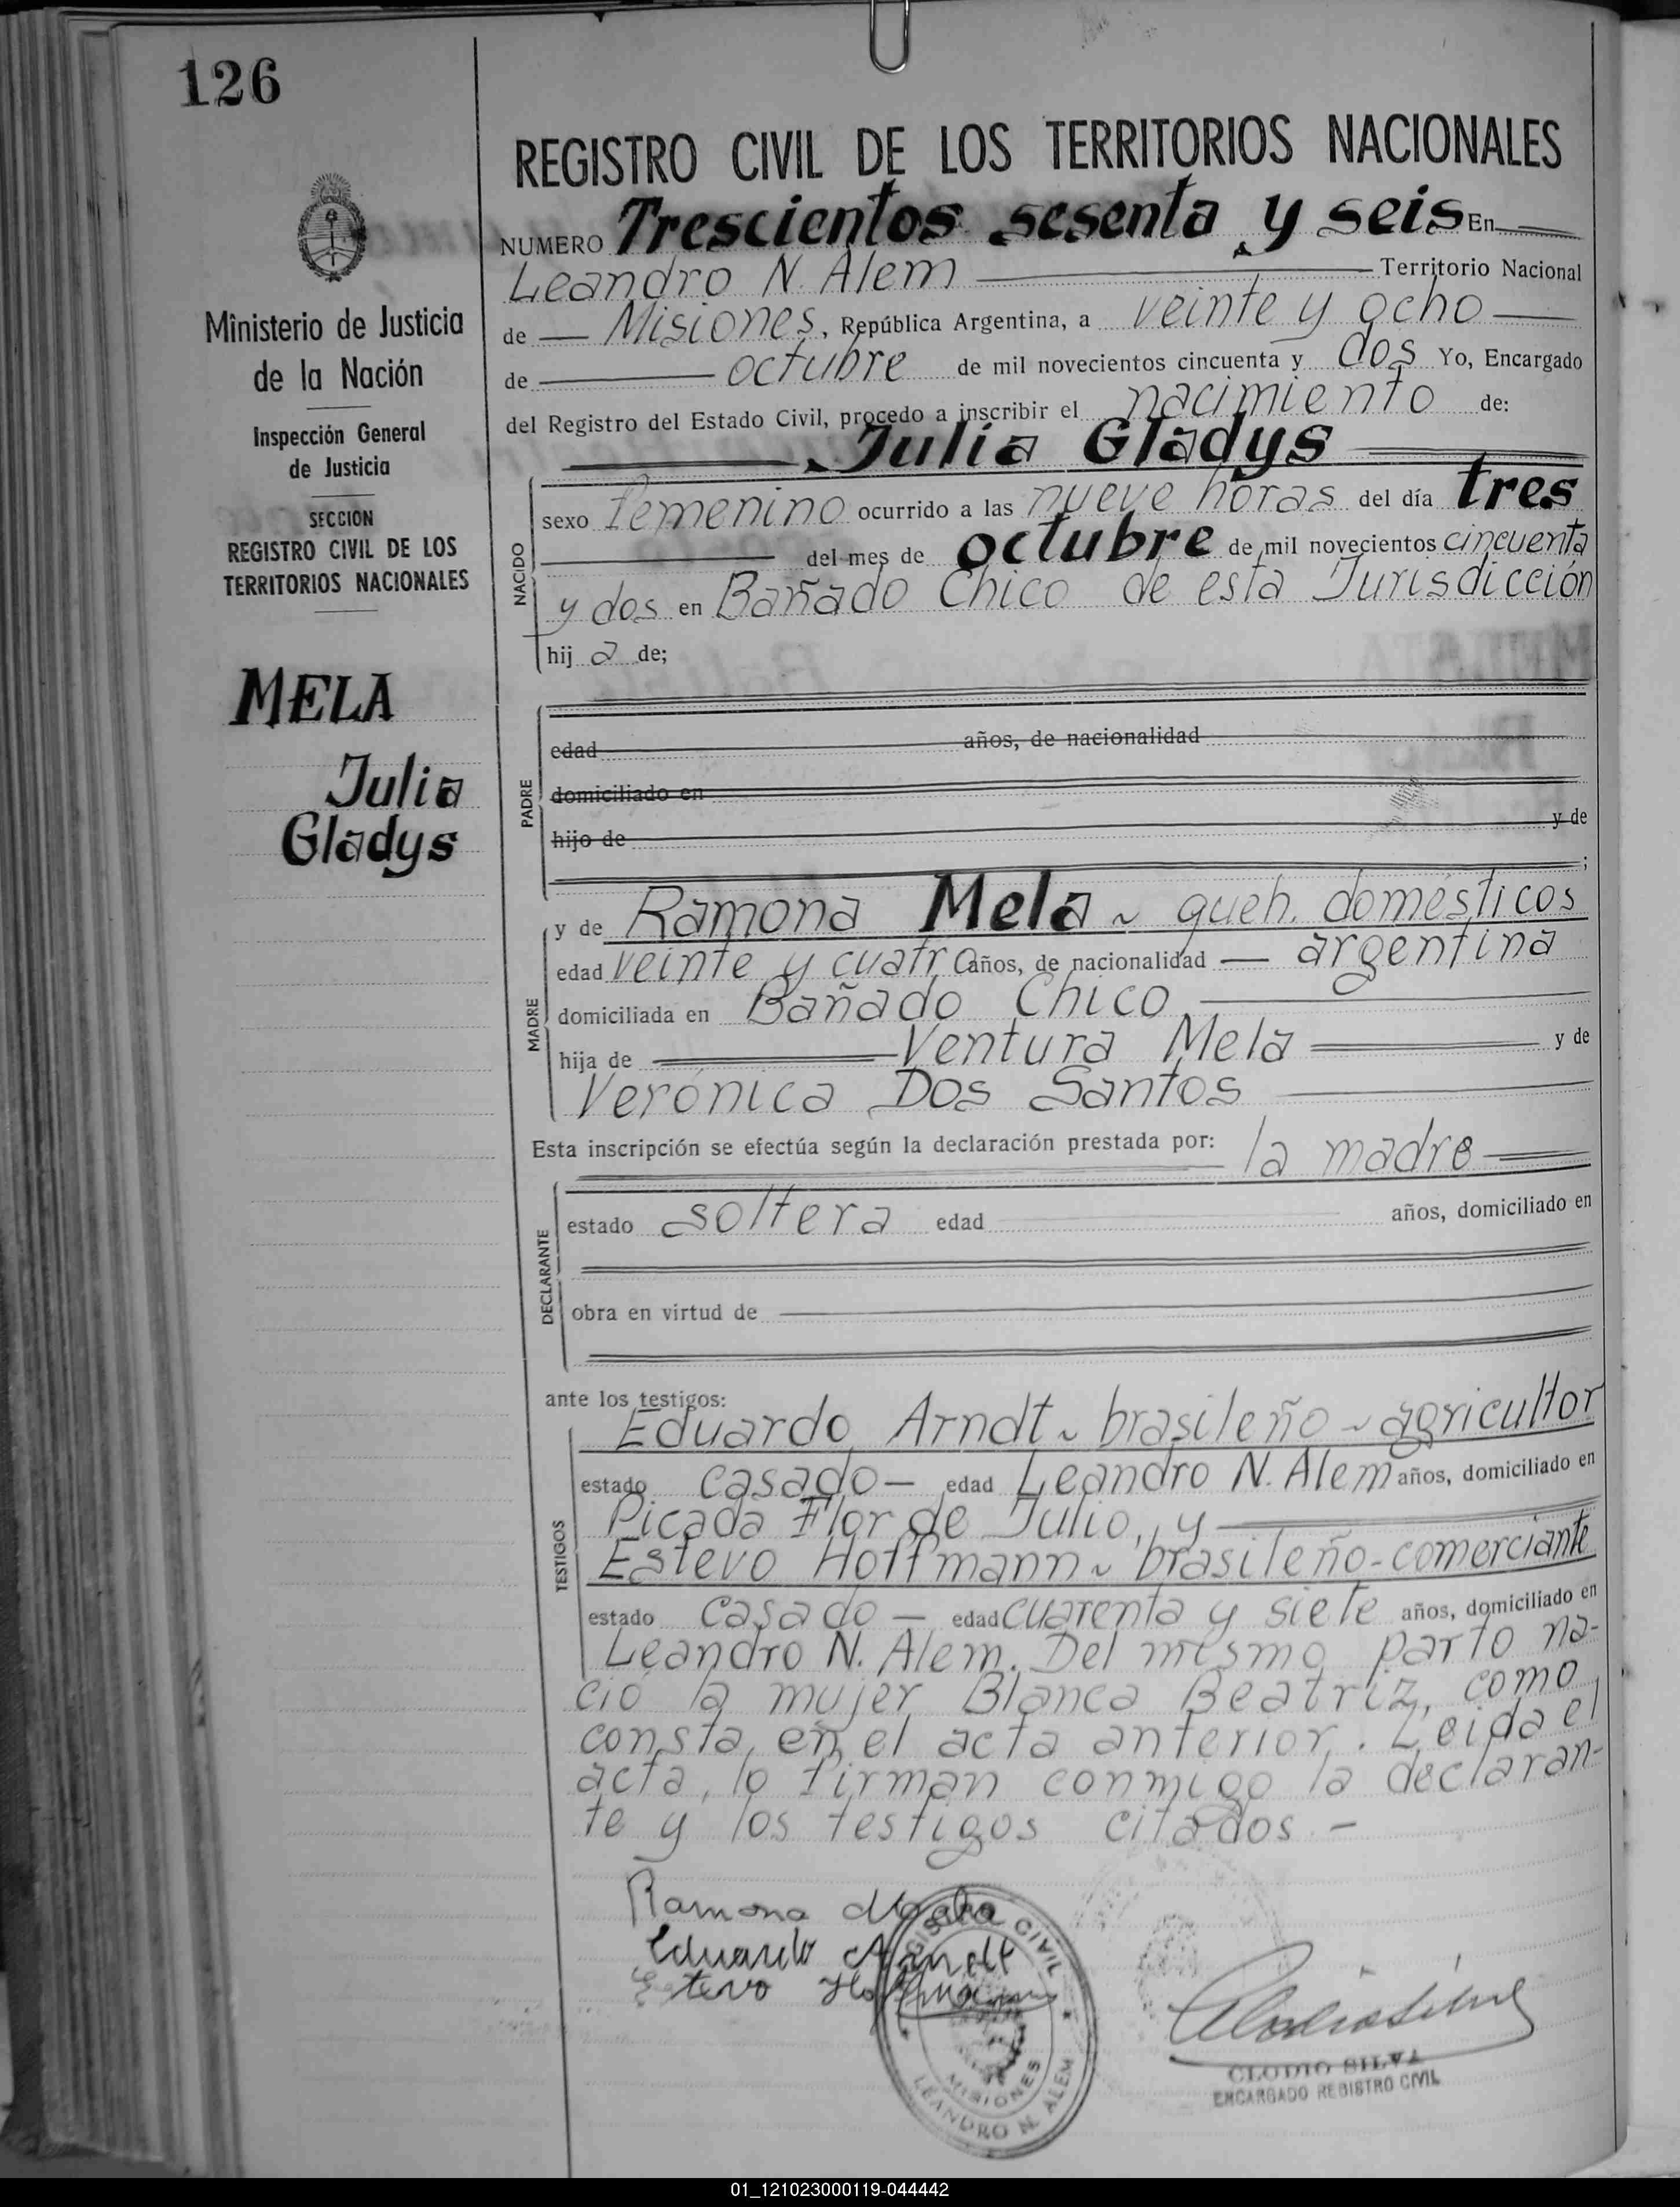 126
REGISTRO CIVIL DE LOS TERRITORIOS NACIONALES
NUMERO Trescientos sesenta y seis En
Leandro N. Alem Territorio Nacional
de Misiones, República Argentina, a veinte y ocho
de octubre de mil novecientos cincuenta y dos Yo, Encargado
del Registro del Estado Civil, procedo a inscribir el nacimiento de:
Julia Gladys
Ministerio de Justicia
de la Nación
Inspección General
de Justicia
SECCION
REGISTRO CIVIL DE LOS
TERRITORIOS NACIONALES
MELA
Julia
Gladys
NACIDO
sexo femenino ocurrido a las nueve horas del día tres
del mes de octubre de mil novecientos cincuenta
y dos en Bañado Chico de esta Jurisdicción
hij a de;
PADRE
edad años, de nacionalidad
domiciliado en
hijo de y de
;
MADRE
y de Ramona Mela ~ queh. domésticos
edad veinte y cuatro años, de nacionalidad argentina
domiciliada en Bañado Chico
hija de Ventura Mela y de
Verónica Dos Santos
Esta inscripción se efectúa según la declaración prestada por: la madre
DECLARANTE
estado soltera edad años, domiciliado en
obra en virtud de
ante los testigos:
TESTIGOS
Eduardo Arndt ~ brasileño ~ agricultor
estado casado - edad Leandro N. Alem años, domiciliado en
Picada Flor de Julio, y
Estevo Hoffmann ~ brasileño - comerciante
estado casado - edad cuarenta y siete años, domiciliado en
Leandro N. Alem. Del mismo parto na-
ció la mujer Blanca Beatriz, como
consta, en el acta anterior. Leida el
acta, lo firman conmigo la declaran-
te y los testigos citados. -
Ramona Mela
Eduardo Arndt
Estevo Hoffmann
REGISTRO CIVIL
MISIONES
LEANDRO N. ALEM
CLODIO SILVA
ENCARGADO REGISTRO CIVIL
01_121023000119-044442